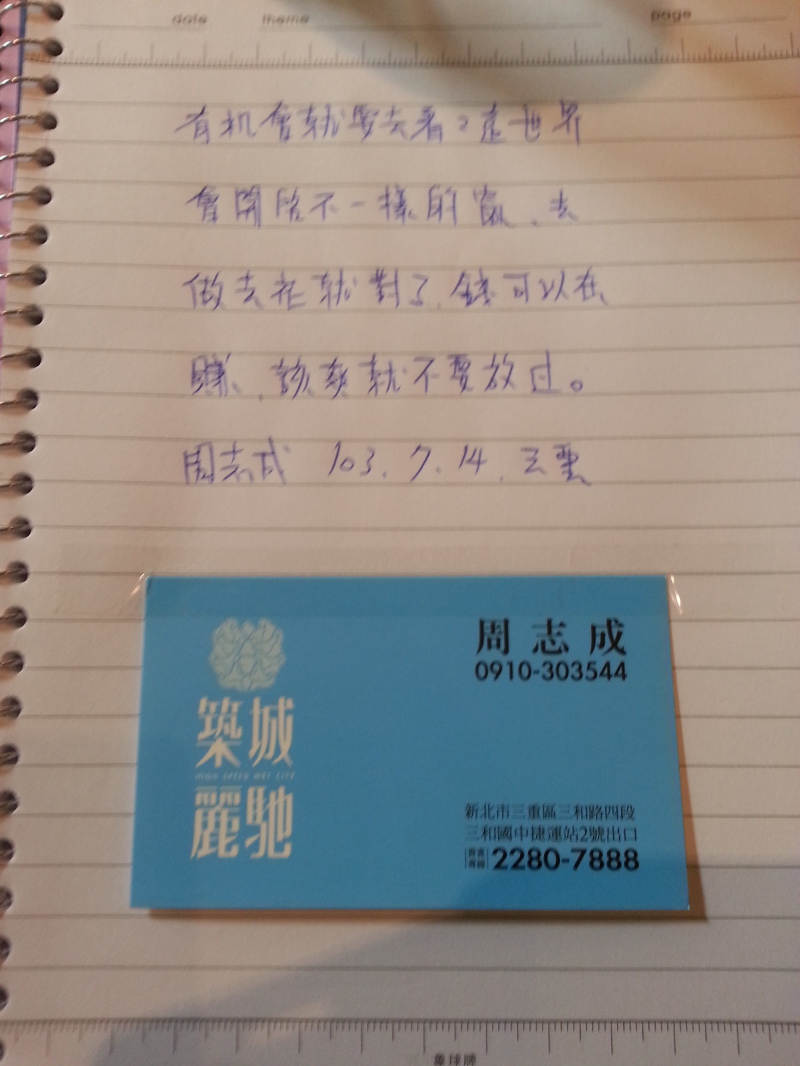 date theme page
有机會就要去看看這世界
會開啟不一樣的窗、去
做去花就對了,錢可以在
賺、該爽就不要放过。
周志成 103.7.14. 三重
築城
HIGH SPEED MRT CITY
麗馳
周志成
0910-303544
新北市三重區三和路四段
三和國中捷運站2號出口
2280-7888
象球牌